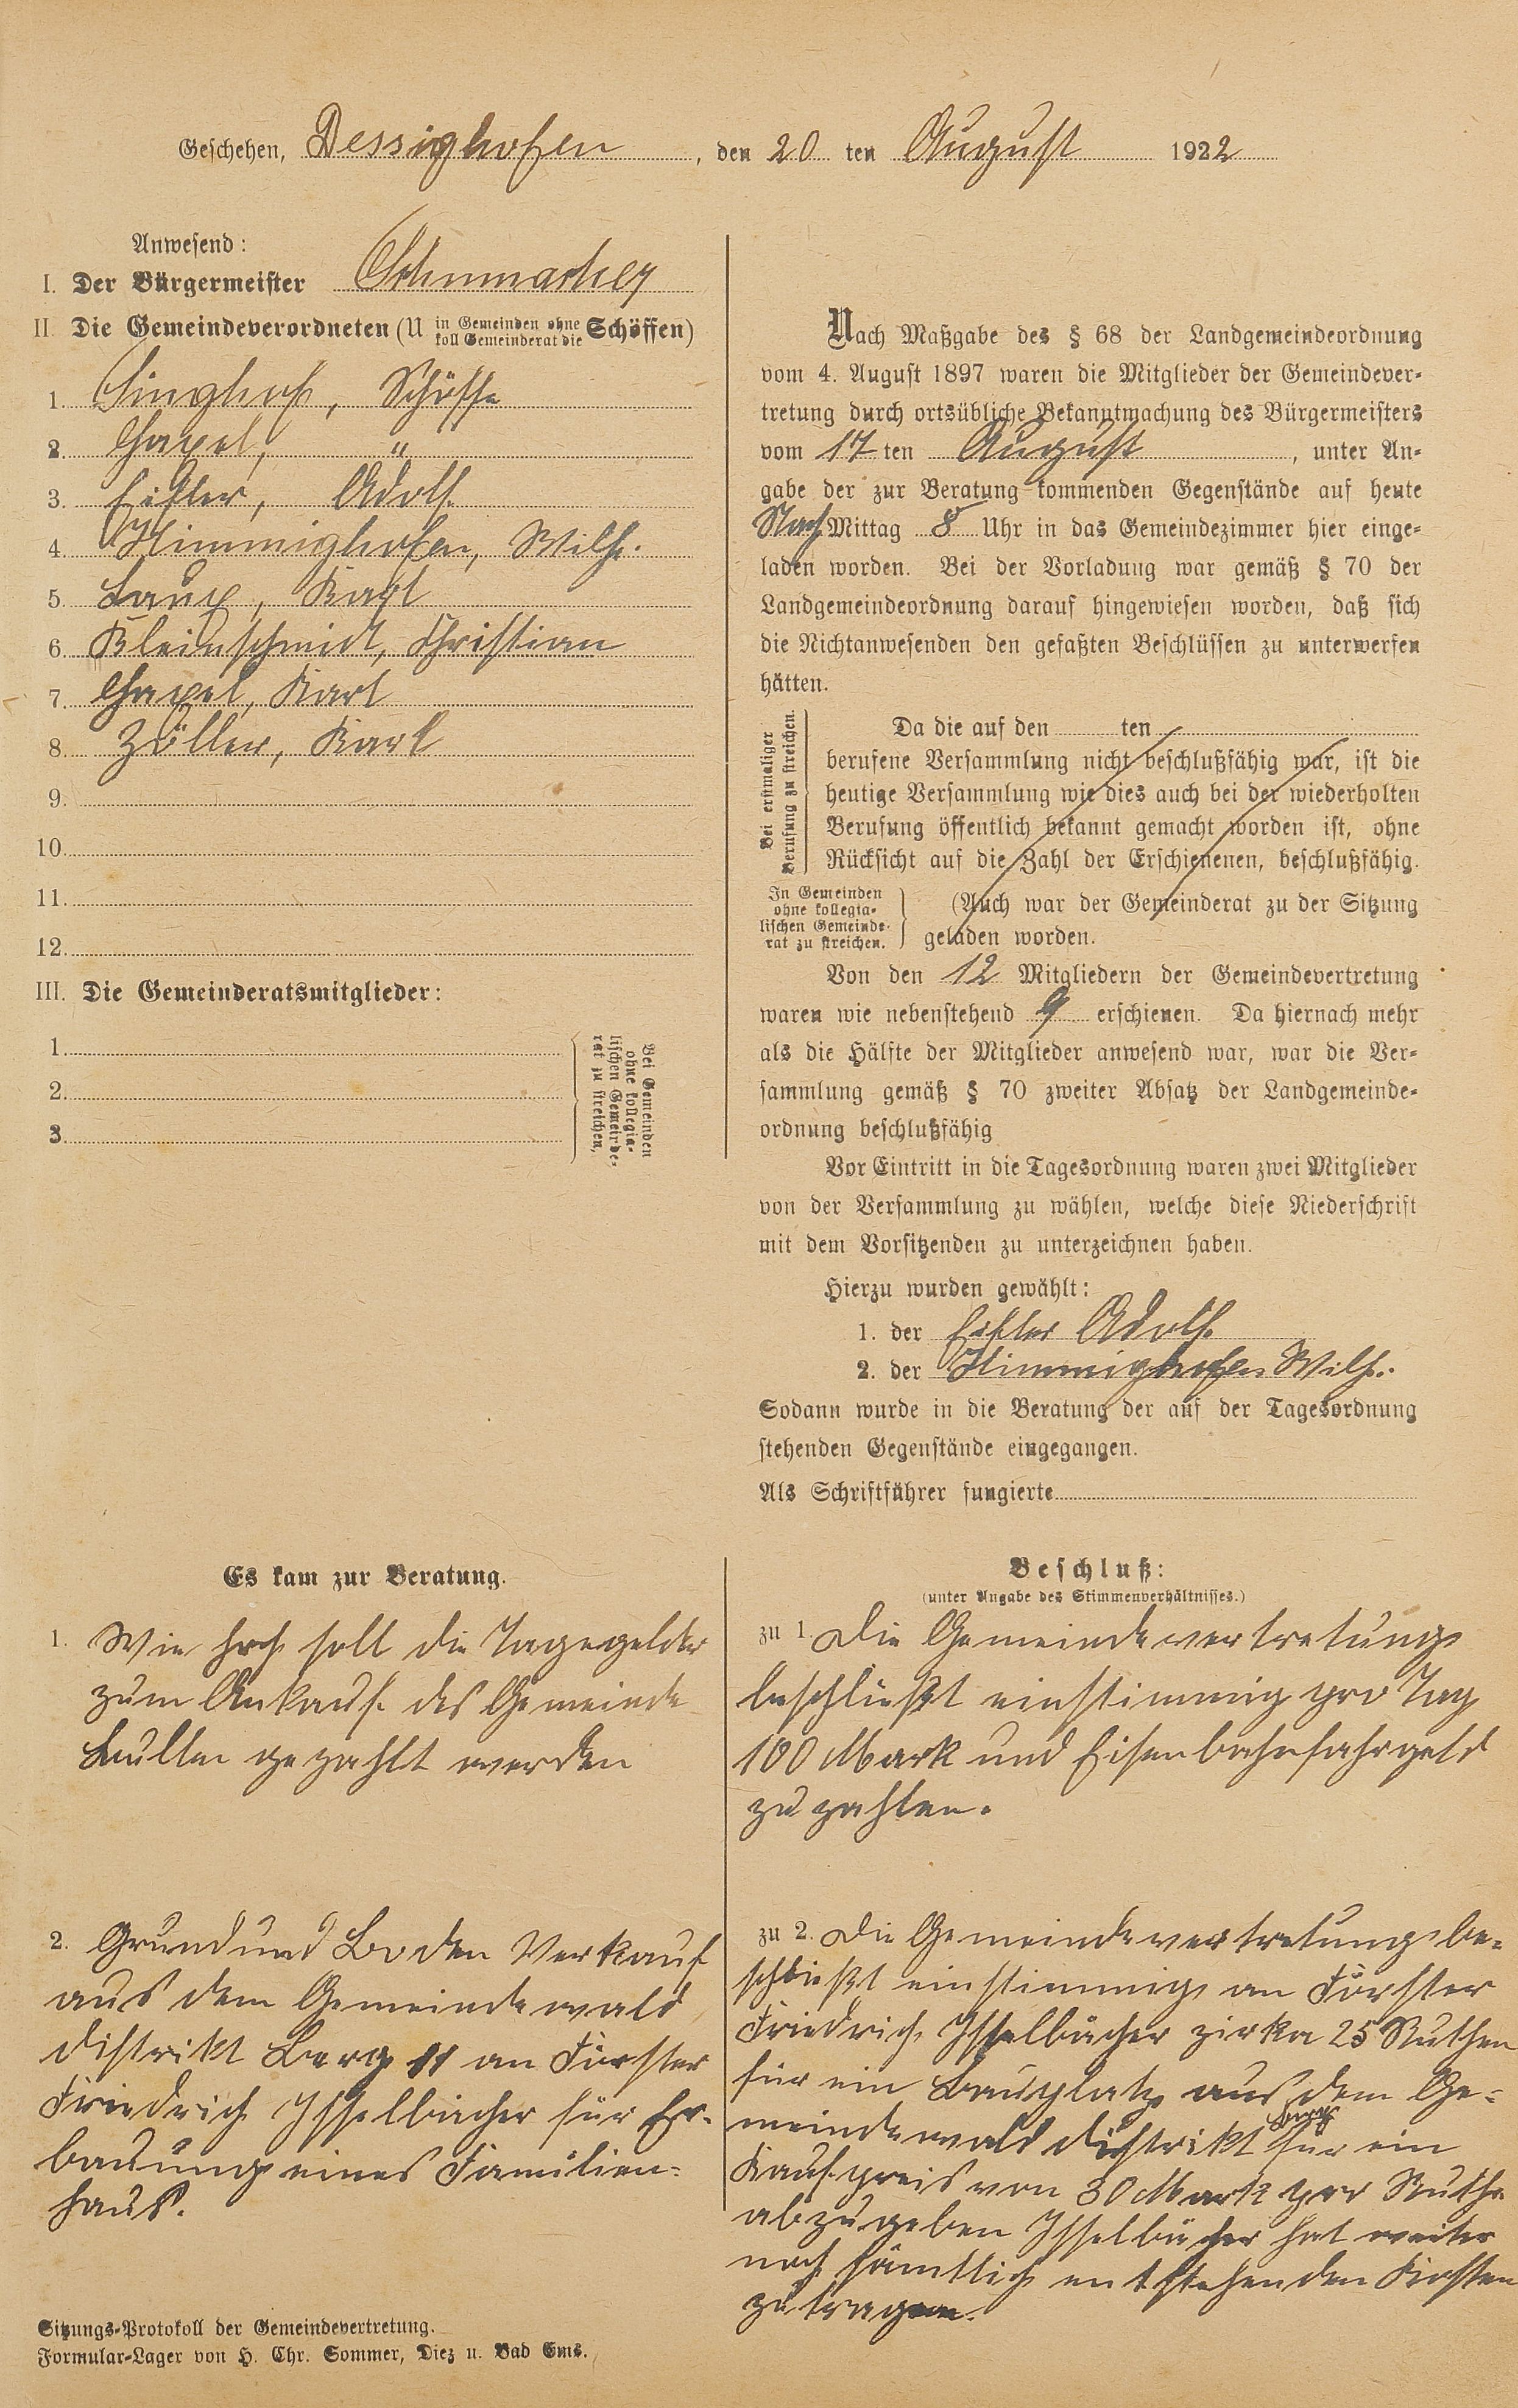 Geschehen, Dessighofen, den 20 ten August 1922
Anwesend:
I. Der Bürgermeister Schumacher
II. Die Gemeindeverordneten (U in Gemeinden ohne koll Gemeinderat die Schöffen)
1. Singhof, Schöffe
2. Gapel, "
3. Eisler, Adolf
4. Himmighofen, Wilh.
5. Laux, Karl
6. Kleinschmidt, Christian
7. Gapel, Karl
8. Zöller, Karl
9.
10.
11.
12.
III. Die Gemeinderatsmitglieder:
1.
2.
3.
Bei Gemeinden
ohne kollegia-
lischen Gemeinde-
rat zu streichen,
Nach Maßgabe des § 68 der Landgemeindeordnung
vom 4. August 1897 waren die Mitglieder der Gemeindever-
tretung durch ortsübliche Bekanntmachung des Bürgermeisters
vom 17 ten August, unter An-
gabe der zur Beratung kommenden Gegenstände auf heute
Nach Mittag 8 Uhr in das Gemeindezimmer hier einge-
laden worden. Bei der Vorladung war gemäß § 70 der
Landgemeindeordnung darauf hingewiesen worden, daß sich
die Nichtanwesenden den gefaßten Beschlüssen zu unterwerfen
hätten.
Bei erstmaliger
Berufung zu streichen.
Da die auf den ten
berufene Versammlung nicht beschlußfähig war, ist die
heutige Versammlung wie dies auch bei der wiederholten
Berufung öffentlich bekannt gemacht worden ist, ohne
Rücksicht auf die Zahl der Erschienenen, beschlußfähig.
In Gemeinden
ohne kollegia-
lischen Gemeinde-
rat zu streichen.
(Auch war der Gemeinderat zu der Sitzung
geladen worden.
Von den 12 Mitgliedern der Gemeindevertretung
waren wie nebenstehend 9 erschienen. Da hiernach mehr
als die Hälfte der Mitglieder anwesend war, war die Ver-
sammlung gemäß § 70 zweiter Absatz der Landgemeinde-
ordnung beschlußfähig
Vor Eintritt in die Tagesordnung waren zwei Mitglieder
von der Versammlung zu wählen, welche diese Niederschrift
mit dem Vorsitzenden zu unterzeichnen haben.
Hierzu wurden gewählt:
1. der Eisler Adolf
2. der Himmighofen Wilh.
Sodann wurde in die Beratung der auf der Tagesordnung
stehenden Gegenstände eingegangen.
Als Schriftführer fungierte
Es kam zur Beratung.
1. Wie hoch soll die Tagegelder
zum Ankauf des Gemeinde
Bullen gezahlt werden
2. Grund und Boden Verkauf
aus dem Gemeindewald
Distrikt Berg 11 an Förster
Friedrich Isselbächer für Er-
bauung eines Familien-
haus.
Beschluß:
(unter Angabe des Stimmenverhältnisses.)
zu 1. Die Gemeindevertretung
beschließt einstimmig pro Tag
100 Mark und Eisenbahnfahrgeld
zu zahlen.
zu 2. Die Gemeindevertretung be-
schließt einstimmig an Förster
Friedrich Isselbächer zirka 25 Ruthen
für ein Bauplatz aus dem Ge-
meindewald Distrikt Berg für ein
Kaufpreis von 30 Mark pro Ruthe
abzugeben Isselbächer hat weiter
noch sämtlich entstehenden Kosten
zu tragen.
Sitzungs-Protokoll der Gemeindevertretung.
Formular-Lager von H. Chr. Sommer, Diez u. Bad Ems.